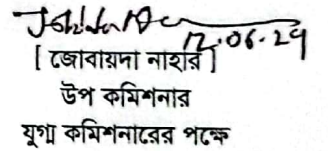 12.06.24
[ জোবায়দা নাহার ]
উপ কমিশনার
যুগ্ম কমিশনারের পক্ষে